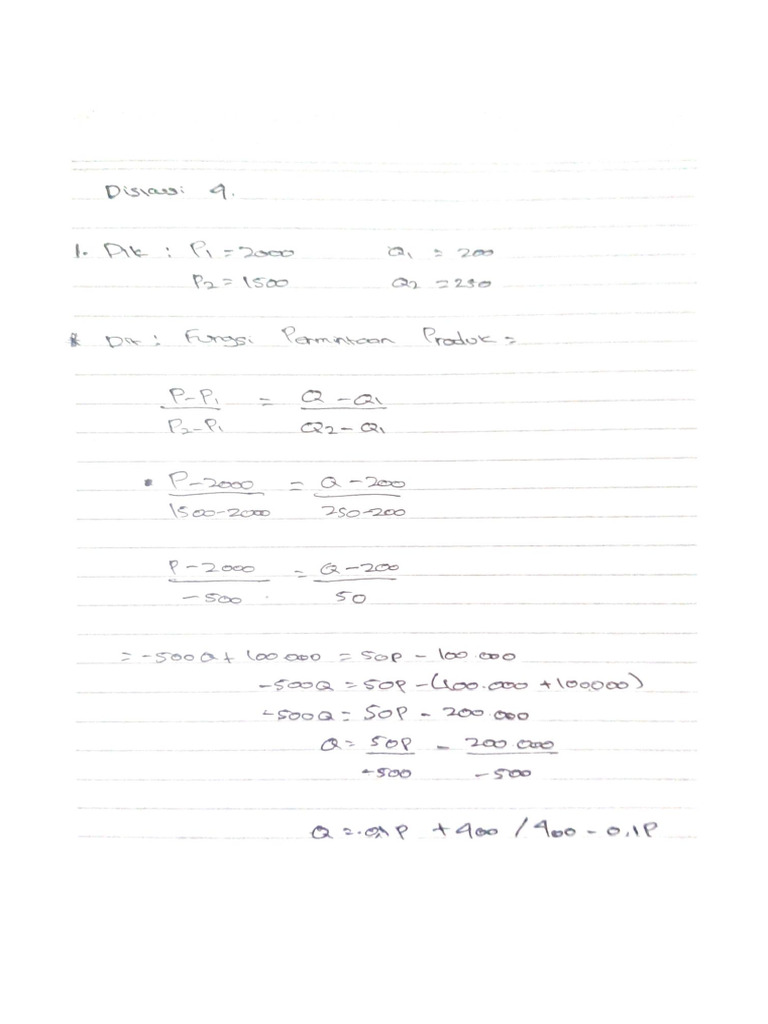 Diskusi 4.
1. Dik : P1 = 2000 Q1 = 200
P2 = 1500 Q2 = 250
Dit : Fungsi Permintaan Produk =
P-P1 / P2-P1 = Q-Q1 / Q2-Q1
• P-2000 / 1500-2000 = Q-200 / 250-200
P-2000 / -500 = Q-200 / 50
= -500Q + 100 000 = 50P - 100.000
-500Q = 50P - (100.000 + 100.000)
-500Q = 50P - 200 000
Q = 50P / -500 - 200 000 / -500
Q = -0,1P + 400 / 400 - 0,1P